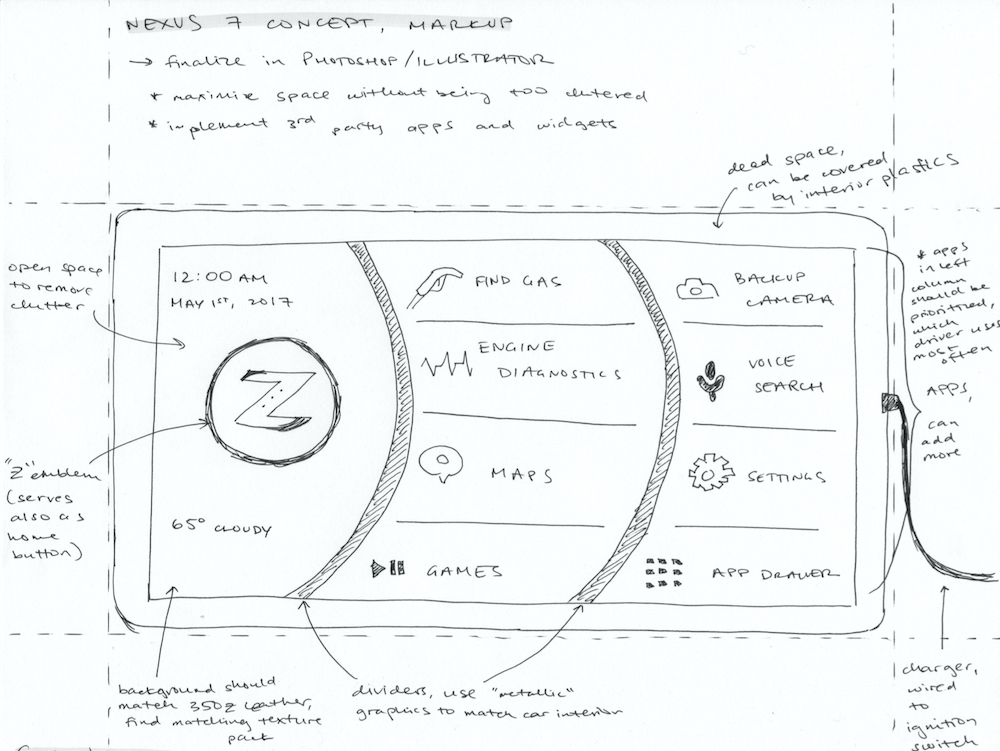 NEXUS 7 CONCEPT, MARKUP
→ finalize in PHOTOSHOP/ILLUSTRATOR
* maximize space without being too clutered
* implement 3rd party apps and widgets
dead space,
can be covered
by interior plastics
open space
to remove
clutter
"Z" emblem
(serves
also as
home
button)
12:00 AM
MAY 1ST, 2017
Z
65° CLOUDY
FIND GAS
ENGINE
DIAGNOSTICS
MAPS
GAMES
BACKUP
CAMERA
VOICE
SEARCH
SETTINGS
APP DRAWER
* apps
in left
column
should be
prioritized,
which
driver uses
most
often
APPS,
can
add
more
background should
match 350z leather,
find matching texture
pack
dividers, use "metallic"
graphics to match car interior
charger,
wired
to
ignition
switch